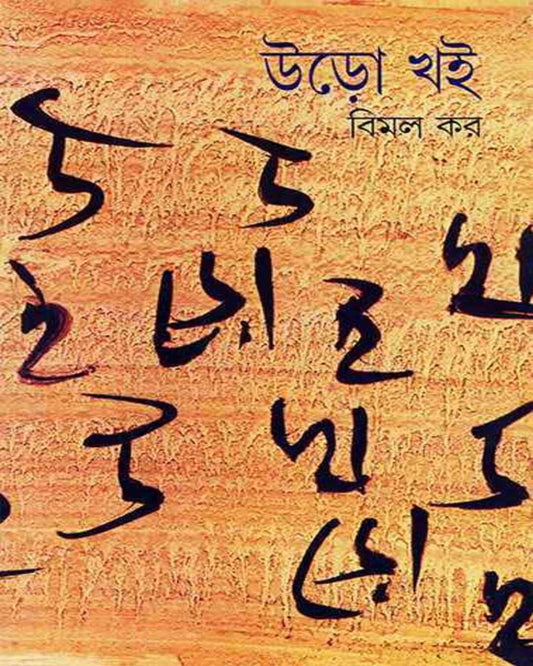 উড়ো খই
বিমল কর
উ উ
খ
ই ড়ো ই
উ খ উ
ড়ো
খ